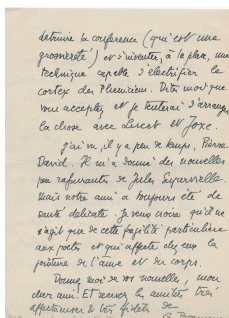 détruire la conférence (qui est une
grossièreté) et d'inventer, à la place, une
technique capable d'électrifier le
cortex des Athéniens. Dites moi que
vous acceptez et je tenterai d'arranger
la chose avec Lucet et Joxe.
J'ai vu, il y a peu de temps, Pierre
David. Il m'a donné des nouvelles
peu rassurantes de Jules Supervielle
mais notre ami a toujours été de
santé délicate. Je veux croire qu'il ne
s'agit que de cette fragilité particulière
aux poètes et qui affecte chez eux la
jointure de l'âme et du corps.
Donnez moi de vos nouvelles, mon
cher ami. Et recevez les amitiés très
affectueuses et très fidèles de